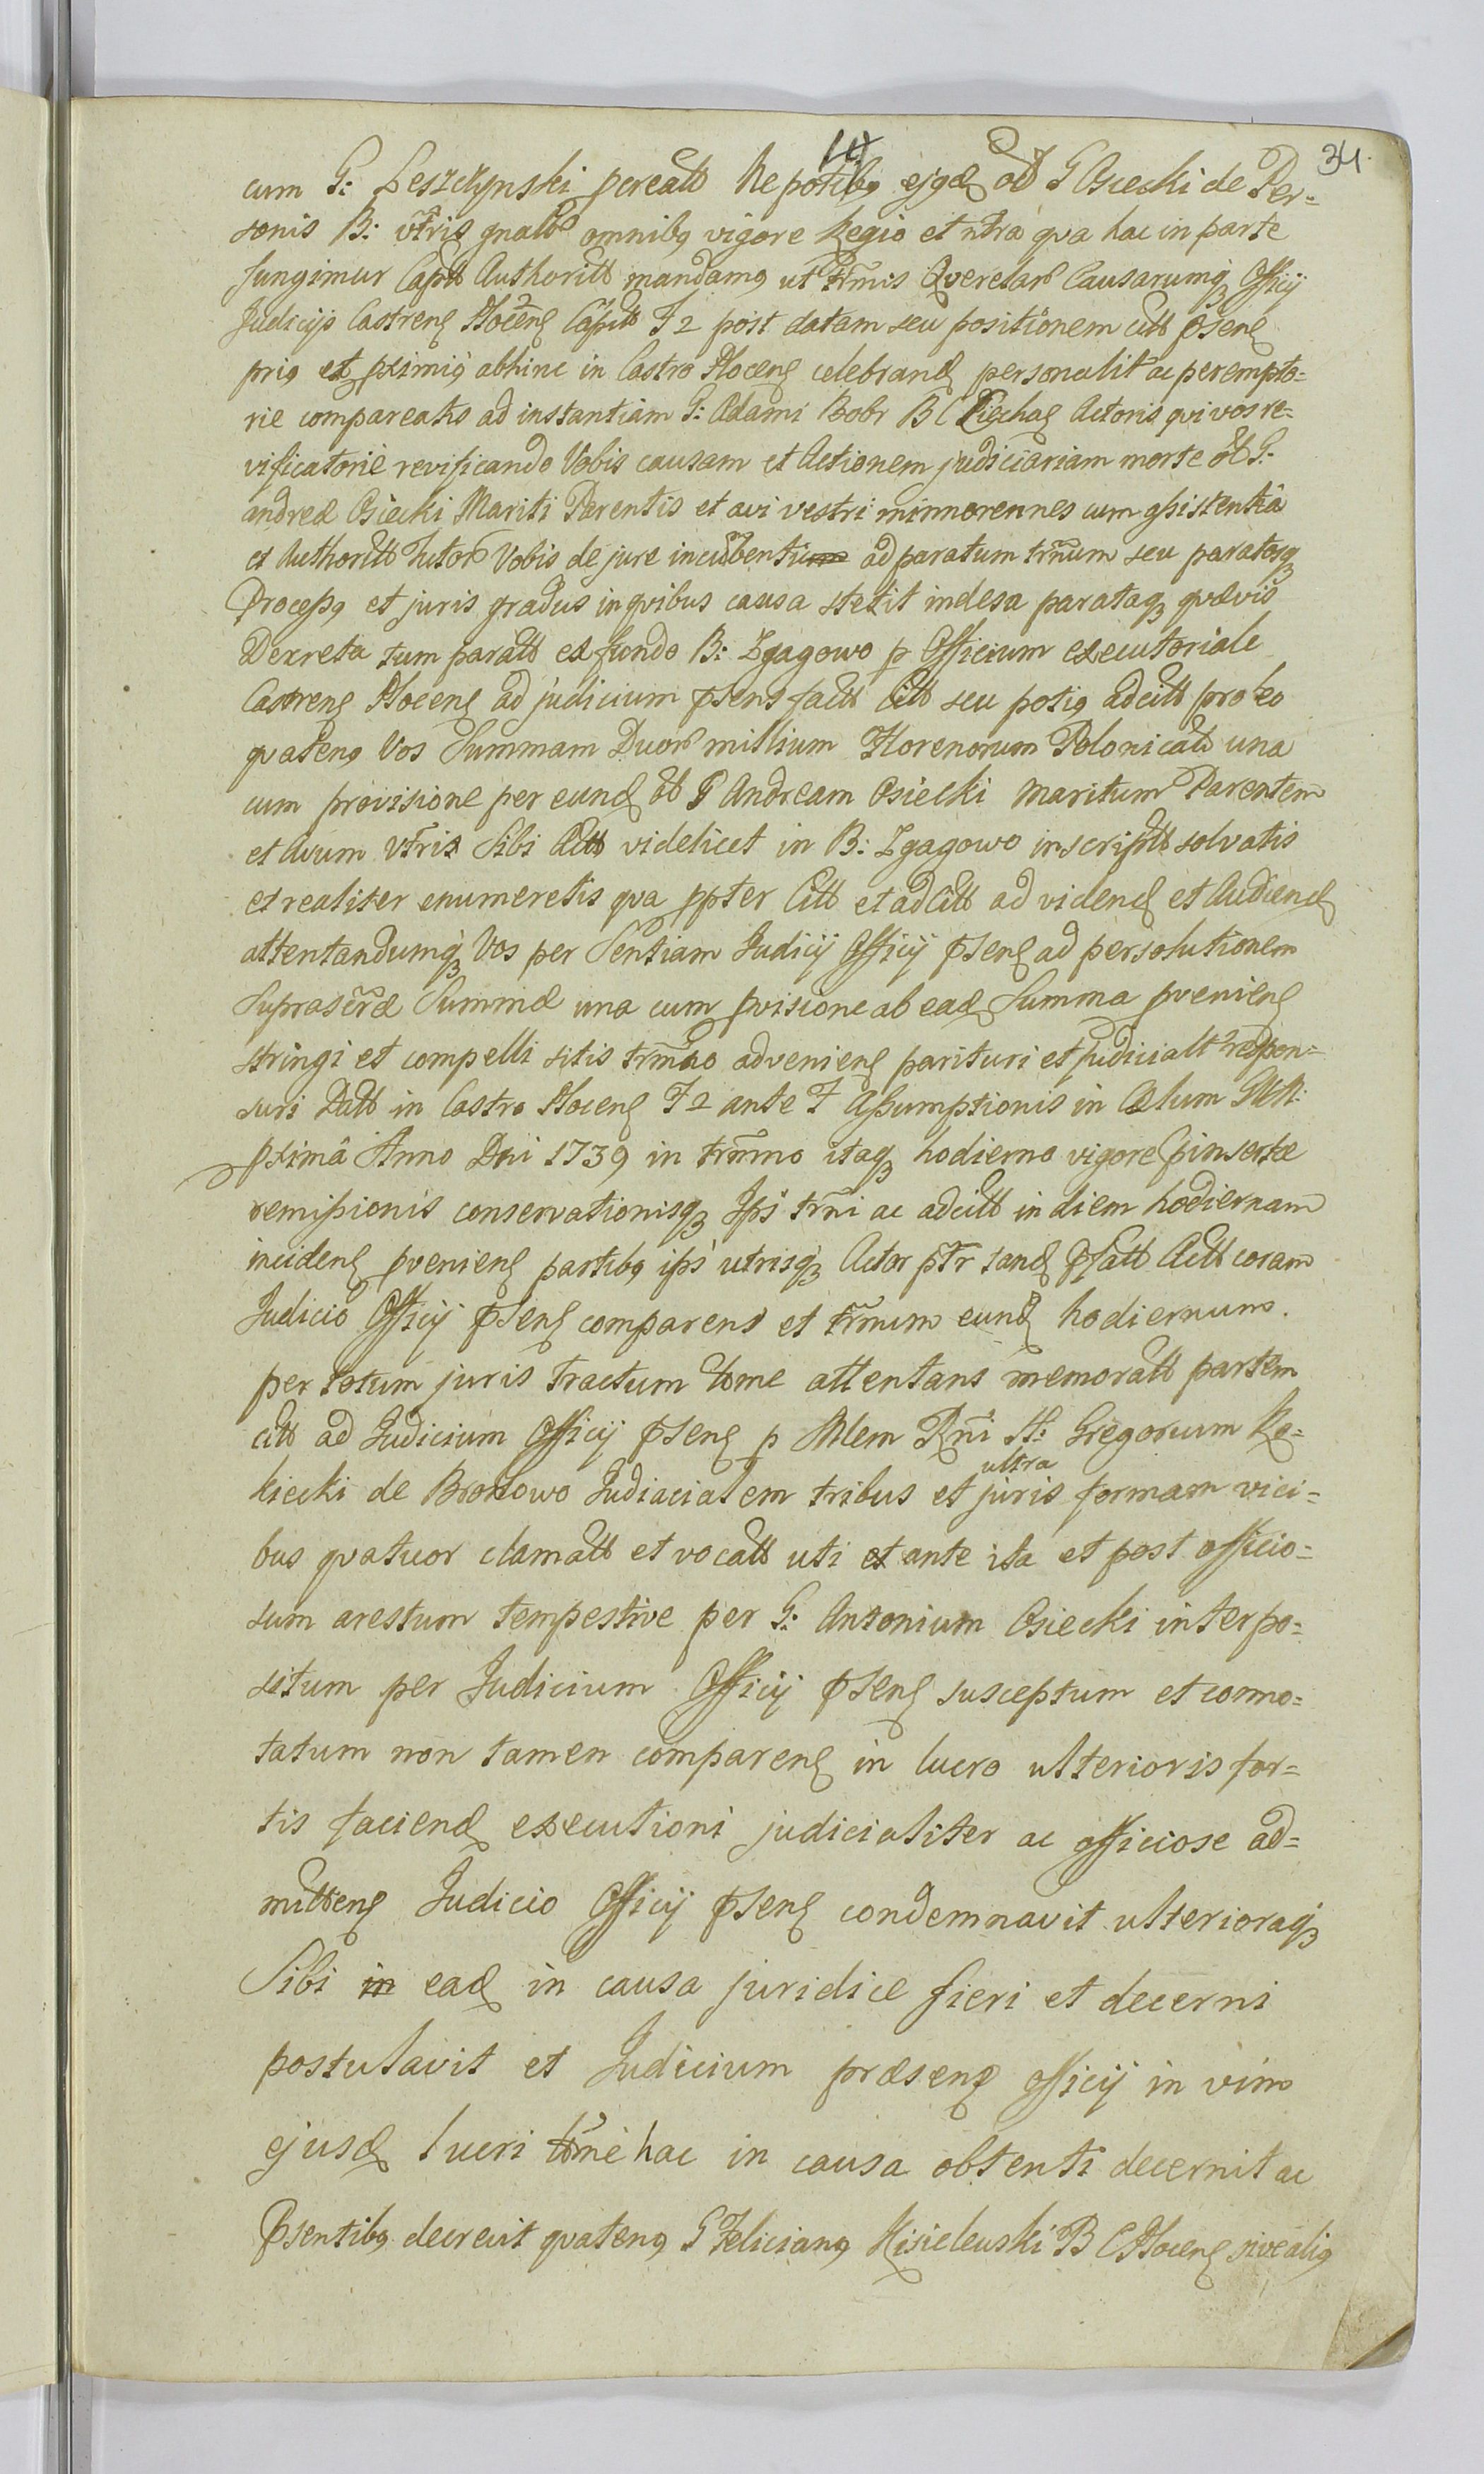 14 34.
cum G: Leszczynski pcreatt Nepotibq ejgd od G Osiecki de Per-
sonis B: vtris gnalb omnibq vigore Regia et ntra qva hac in parte
fungimur Captt Authoritt mandamq ut trmis Qverelar Causarumq Officij
Judicijs Castrens Plocens Capitt F 2 post datam seu positionem citt psens
priq et pximiq abhinc in Castro Plocens celebrand personalit ac perempto-
rie compareatis ad instantiam G: Adami Bobr B C Actoris qvi vos re-
vificatorie revificando Vobis causam et Actionem judiciariam morte ob G:
andreæ Osiecki Mariti Parentis et avi vestri minnorennes cum assistentia
et Authoritt Tutor Vobis de jure incubenti ad paratum trnum seu paratosq
Processq et juris gradus in qvibus causa stetit indesa parataq qvævis
Decreta tum paratt ex fundo B: Zgagowo p Officium executoriale
Castrens Plocens ad judicium psens fatt Citt seu potiq adcitt pro eo
qvatenq Vos Summam Duor millium Florenorum Polonicalt una
cum provisione per eund ob G Andream Osiecki Maritum Parentem
et Avum Vtris Sibi Act videlicet in B: Zgagowo inscriptt solvatis
et realiter enumeretis qva ppter Citt et adCitt ad vidend et Audiend
attentandumq Vos per Sentiam Judicij Officij psens ad persolutionem
Suprascræ Summæ una cum pvisione ab ead Summa pveniens
stringi et compelli sitis trmno adveniens parituri et judicialtr respon-
suri Datt in Castro Plocens F 2 ante F Assumptionis in Cælum
pximâ Anno Dni 1739 in trmno itaq hodierno vigore pinsertæ
remissionis conservationisq Ips trni ac adcitt in diem hodiernam
incidens pveniens partibq ips utrisq Actor ptr sand psatt Act coram
Judicio Officij psens comparens et trmum eund hodiernum.
per totum juris tractum tome attentans memoratt partem
citt ad Judicium Officij psens p Mlem Rni N: Gregorium Ro-
kicki de Bronowo Judiacialem tribus et ultra juris formam vici-
bus qvatuor clamatt et vocatt uti et ante ita et post officio-
sum arestum tempestive per G: Antonium Osiecki interpo-
situm per Judicium Officij psens susceptum et conno-
tatum non tamen comparens in lucro ulterioris for-
tis faciend executioni judicialiter ac officiose ad-
mittens Judicio Officij psens condemnavit ulterioraq
Sibi in ead in causa juridice fieri et decerni
postulavit et Judicium præsens officij in vim
ejusd lucri tome hac in causa obtenti decernit ac
Psentibq decrevit qvatenq G Felicianq Kisielewski B C Plocens sive aliq